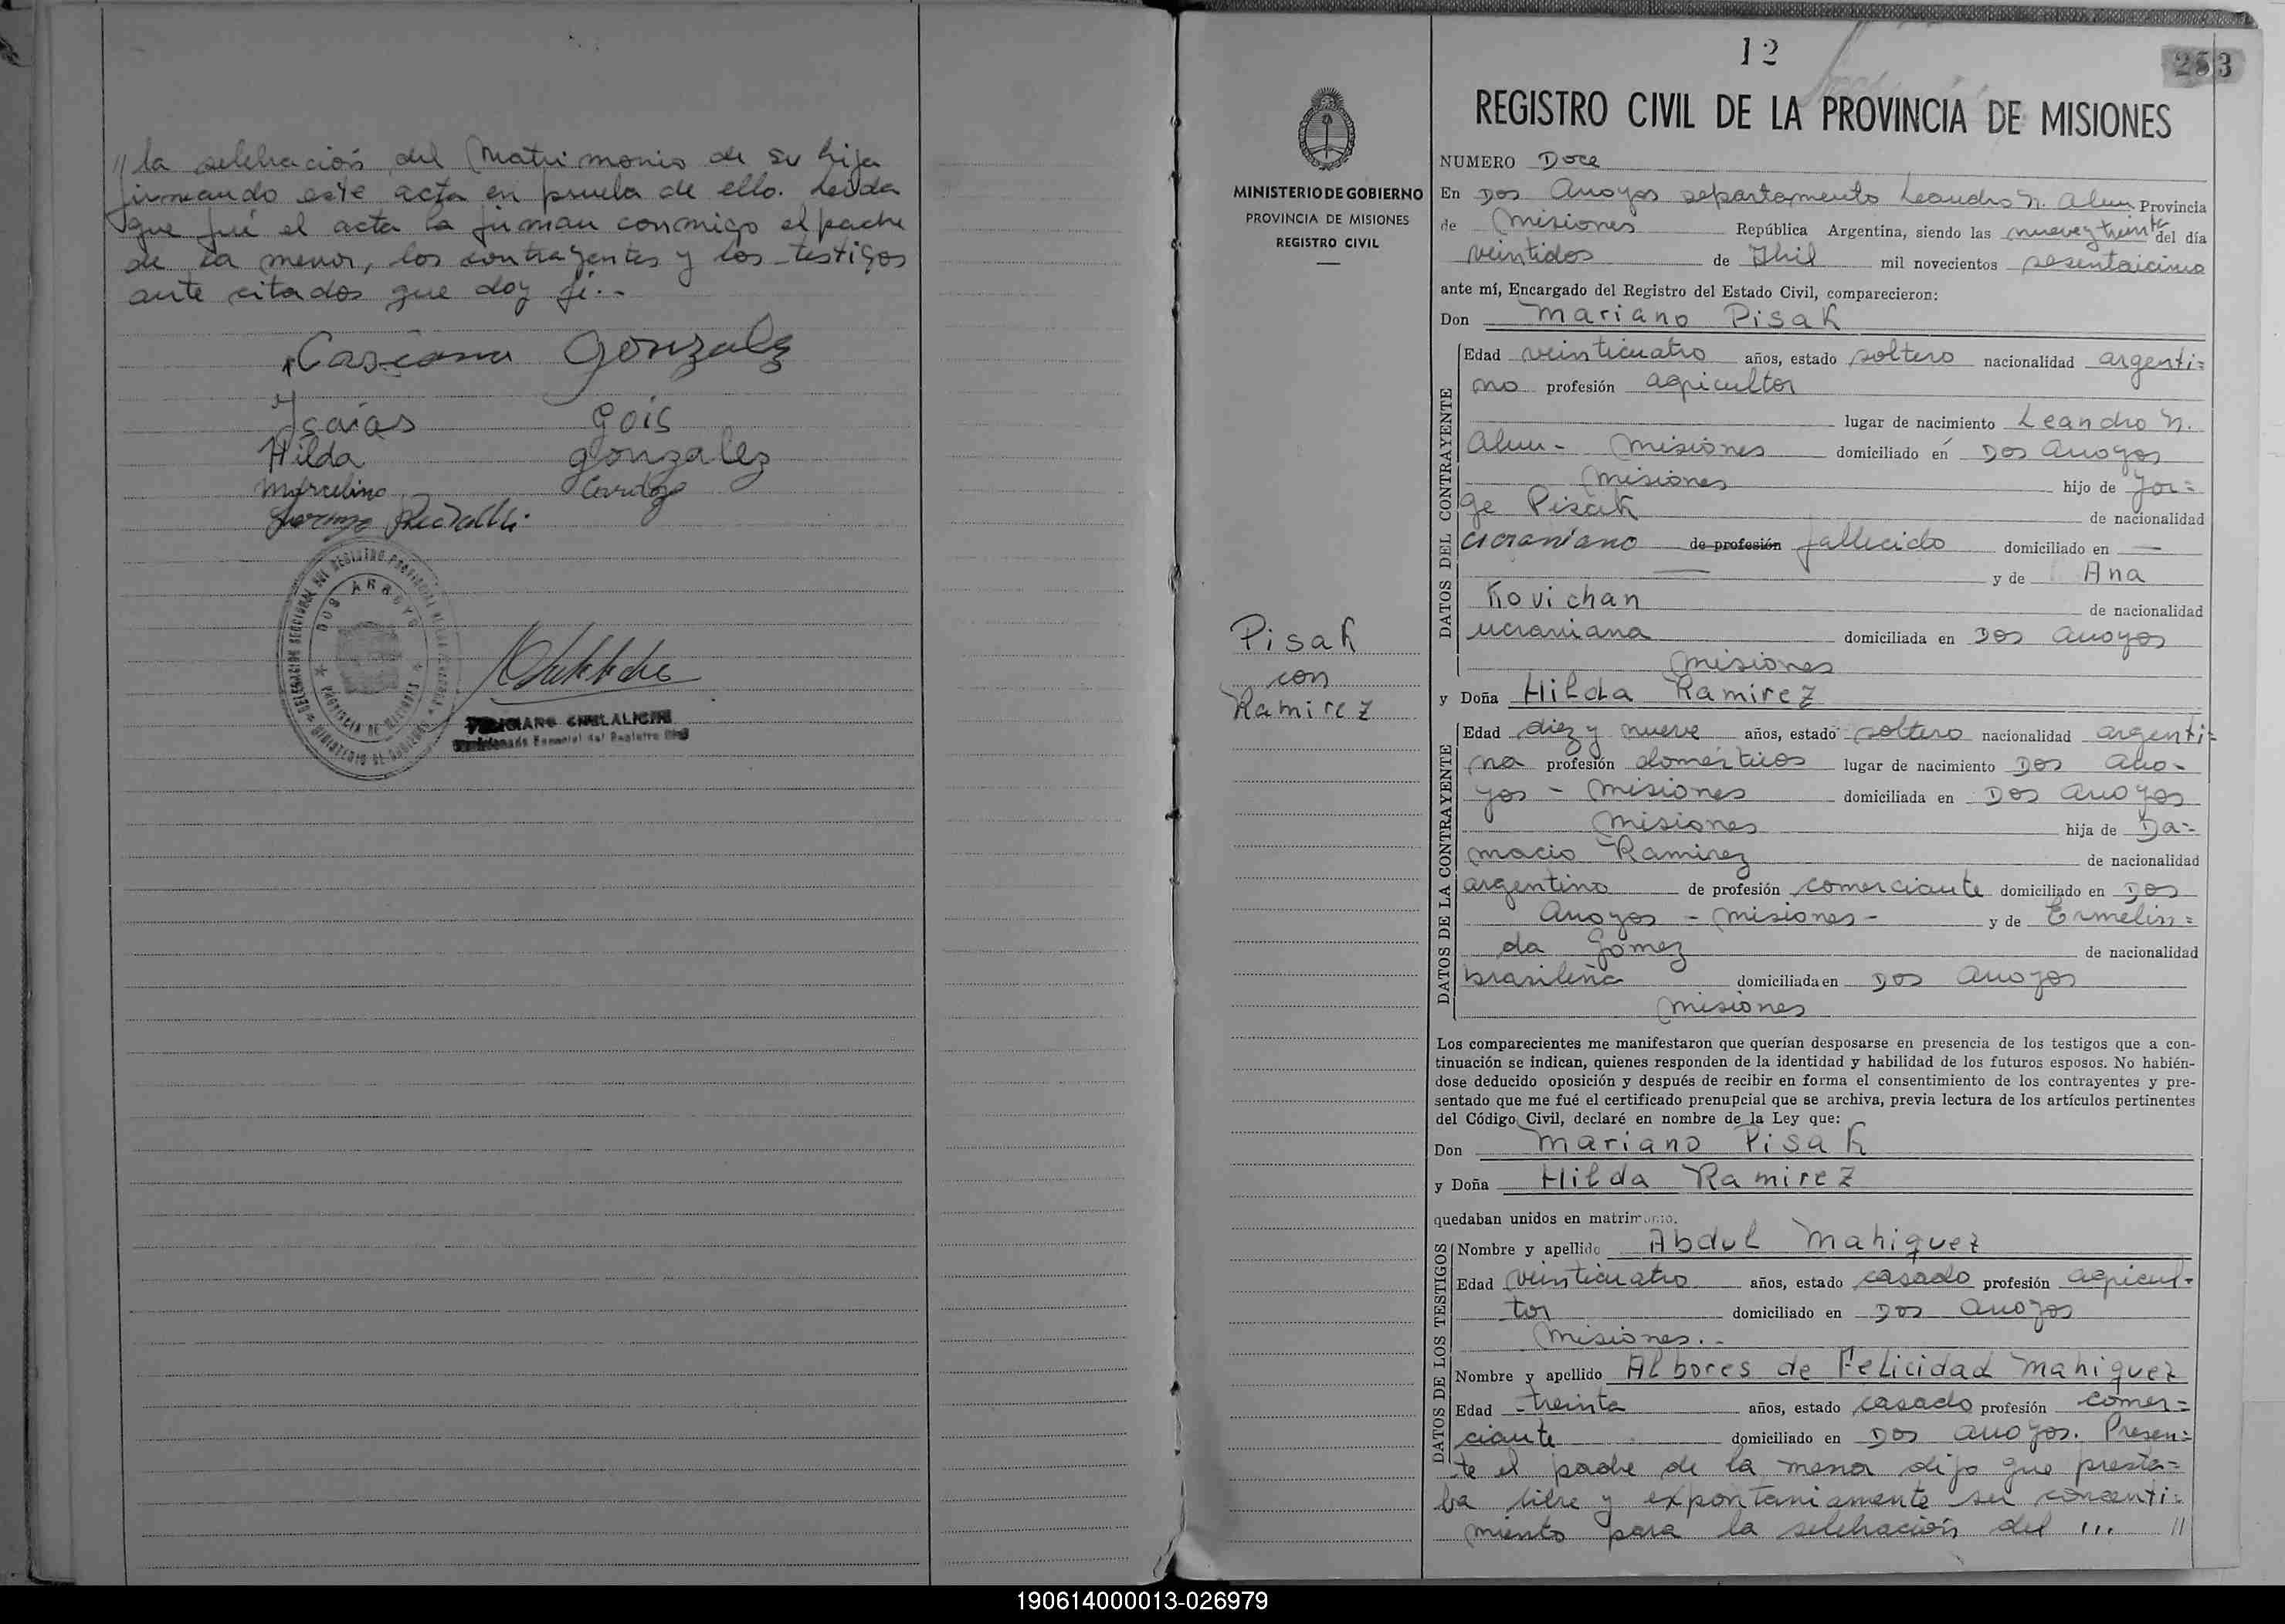 // la selebración del Matrimonio de su hija
firmando este acta en prueba de ello. Leida
que fué el acta la firman conmigo el padre
de la menor, los contrayentes y los testigos
ante citados que doy fé.-
Gonzalez
Isaías Gois
Hilda Gonzalez
Marcelino Cardozo
DOS ARROYOS
PROVINCIA DE MISIONES
12
253
REGISTRO CIVIL DE LA PROVINCIA DE MISIONES
MINISTERIO DE GOBIERNO
PROVINCIA DE MISIONES
REGISTRO CIVIL
Pisak
con
Ramirez
NUMERO Doce
En Dos Arroyos departamento Leandro N. Alem Provincia
de Misiones República Argentina, siendo las nueve y treinta del día
veintidos de Abril mil novecientos sesentaicinco
ante mí, Encargado del Registro del Estado Civil, comparecieron:
Don Mariano Pisak
DATOS DEL CONTRAYENTE
Edad veinticuatro años, estado soltero nacionalidad argenti=
no profesión agricultor
lugar de nacimiento Leandro N.
Alem - Misiones domiciliado en Dos Arroyos
Misiones hijo de Jor=
ge Pisak de nacionalidad
ucraniano de profesión fallecido domiciliado en —
— y de Ana
Kovichan de nacionalidad
ucraniana domiciliada en Dos Arroyos
Misiones
y Doña Hilda Ramirez
DATOS DE LA CONTRAYENTE
Edad diez y nueve años, estado soltero nacionalidad argenti=
na profesión domésticos lugar de nacimiento Dos Arro-
yos - Misiones domiciliada en Dos Arroyos
Misiones hija de Da=
macio Ramirez de nacionalidad
argentino de profesión comerciante domiciliado en Dos
Arroyos - Misiones - y de Ermelin=
da Gomez de nacionalidad
brasileña domiciliada en Dos Arroyos
Misiones
Los comparecientes me manifestaron que querían desposarse en presencia de los testigos que a con-
tinuación se indican, quienes responden de la identidad y habilidad de los futuros esposos. No habién-
dose deducido oposición y después de recibir en forma el consentimiento de los contrayentes y pre-
sentado que me fué el certificado prenupcial que se archiva, previa lectura de los artículos pertinentes
del Código Civil, declaré en nombre de la Ley que:
Don Mariano Pisak
y Doña Hilda Ramirez
quedaban unidos en matrimonio.
DATOS DE LOS TESTIGOS
Nombre y apellido Abdul Mahiquez
Edad veinticuatro años, estado casado profesión agricul-
tor domiciliado en Dos Arroyos
Misiones.-
Nombre y apellido Albores de Felicidad Mahiquez
Edad treinta años, estado casado profesión comer=
ciante domiciliado en Dos Arroyos. Presen=
te el padre de la menor dijo que presta=
ba libre y expontaniamente su concenti=
miento para la selebración del ... //
190614000013-026979